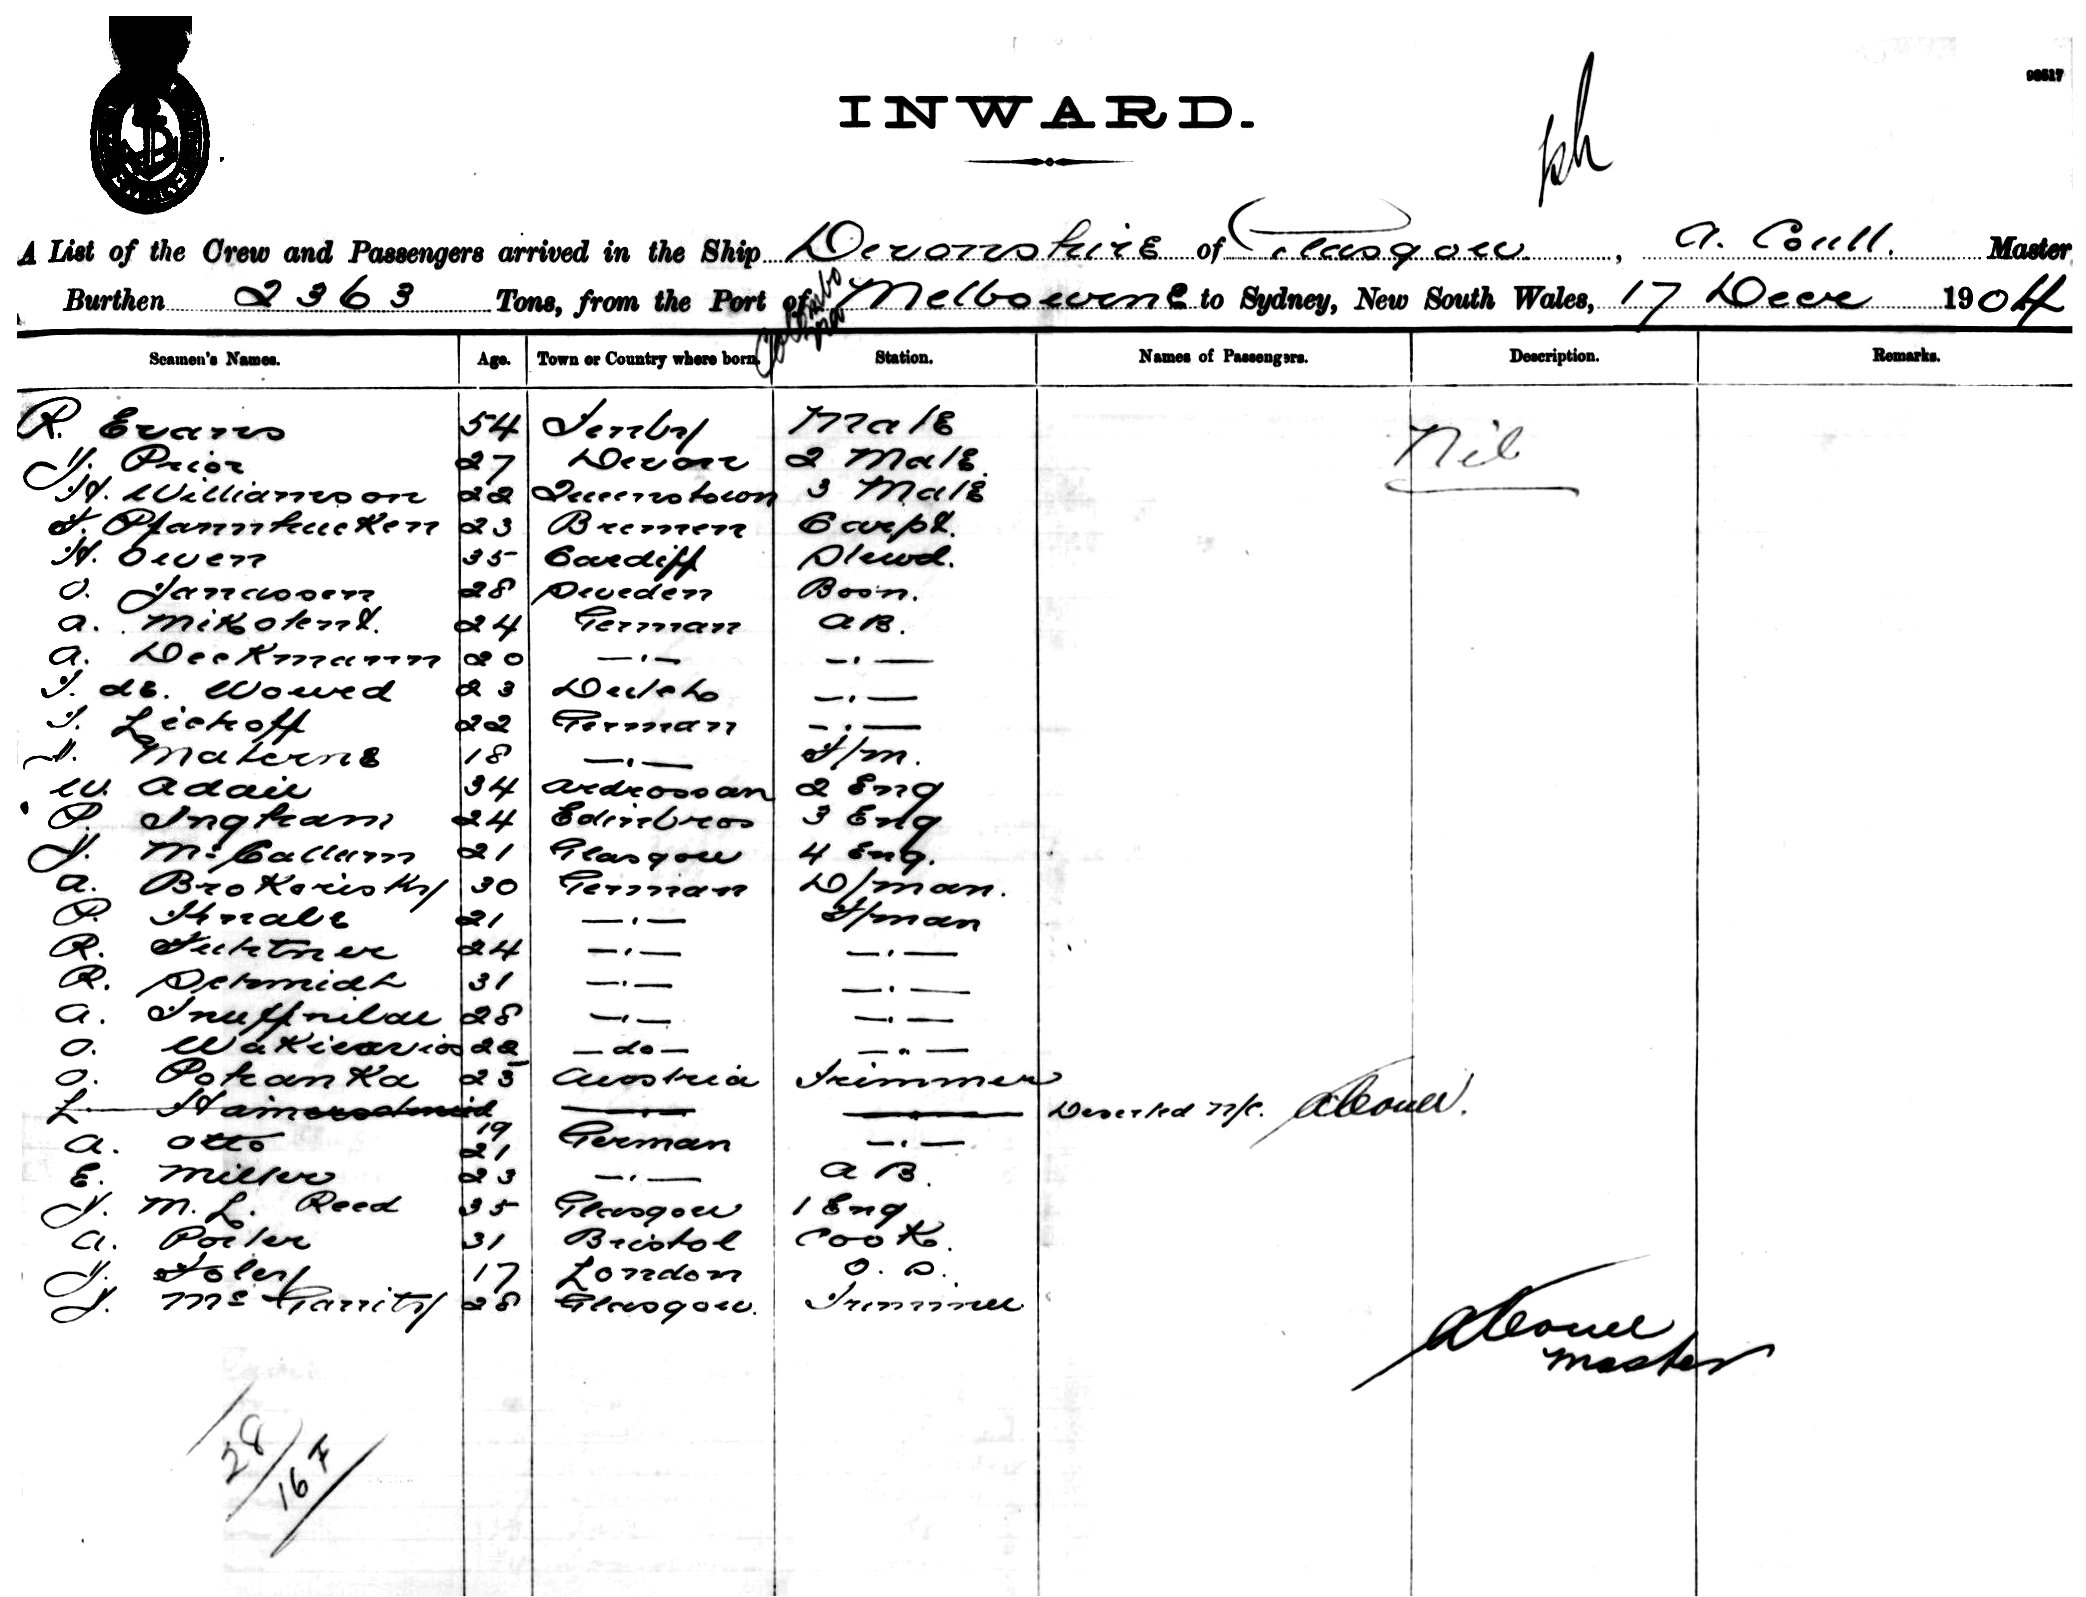 98517
INWARD.
A List of the Crew and Passengers arrived in the Ship Devonshire of Glasgow, A. Coull. Master
Burthen 2363 Tons, from the Port of Colombo via Melbourne to Sydney, New South Wales, 17 Decr 1904
Seamen's Names. Age. Town or Country where born. Station. Names of Passengers. Description. Remarks.
R. Evans 54 Tenby Mate Nil
J. Prior 27 Devon 2 Mate
H. Williamson 22 Queenstown 3 Mate
F. Pfannkucken 23 Bremen Carpt.
H. Owen 35 Cardiff Stewd.
O. Janasson 28 Sweden Bosn.
A. Mikolent. 24 German AB.
A. Deekmann 20 —.— —.—
T. de. Wowed 23 Dutch —.—
T. Liekoff 22 German —.—
Materne 18 —.— F/m.
W. Adair 34 Ardrossan 2 Eng
P. Ingram 24 Edinbro 3 Eng
J. McCallum 21 Glasgow 4 Eng.
A. Brokoriesky 30 German D/man.
P. Knabe 21 —.— F/man
R. 24 —.— —.—
R. Schmidt 31 —.— —.—
A. 28 —.— —.—
O. 22 —do— —"—
O. Pohanka 25 Austria Trimmer
L. Hamerschmid 19 —.— —.— Deserted N/C. ACoull.
A. Otto 21 German —.—
E. Miller 23 —.— AB.
J. M. L. Reed 35 Glasgow 1 Eng
A. Porter 31 Bristol Cook.
J. Foley 17 London O. S.
J. McGarrity 28 Glasgow. Trimmer
ACoull
Master
28/16 F